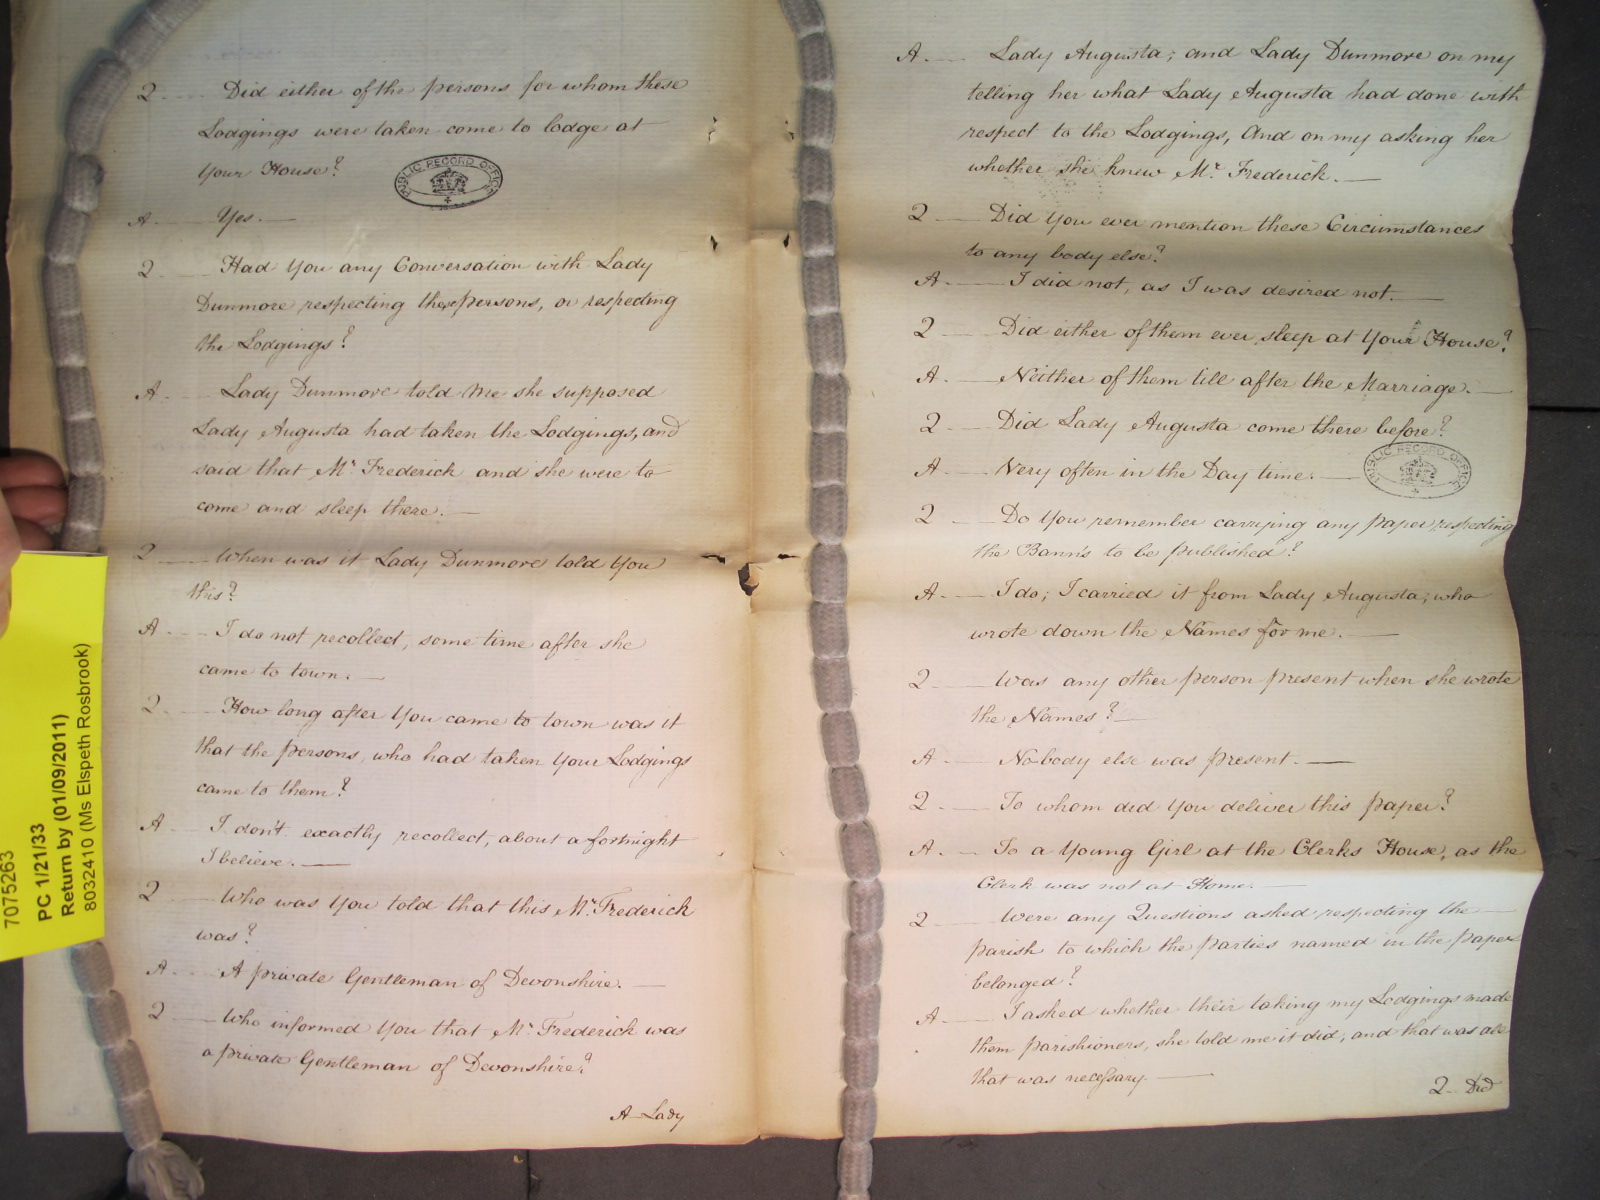 Q. Did either of the persons for whom these
Lodgings were taken come to lodge at
Your House?
PUBLIC RECORD OFFICE
A. Yes.
Q. Had You any Conversation with Lady
Dunmore respecting these persons, or respecting
the Lodgings?
A. Lady Dunmore told me she supposed
Lady Augusta had taken the Lodgings, and
said that Mr. Frederick and she were to
come and sleep there.
Q. When was it Lady Dunmore told You
this?
A. I do not recollect, some time after she
came to town.
Q. How long after You came to town was it
that the persons, who had taken Your Lodgings
came to them?
A. I don't exactly recollect, about a fortnight
I believe.
Q. Who was You told that this Mr. Frederick
was?
A. A private Gentleman of Devonshire.
Q. Who informed You that Mr. Frederick was
a private Gentleman of Devonshire?
A Lady
A. Lady Augusta; and Lady Dunmore on my
telling her what Lady Augusta had done with
respect to the Lodgings, And on my asking her
whether she knew Mr. Frederick.
Q. Did You ever mention these Circumstances
to any body else?
A. I did not, as I was desired not.
Q. Did either of them ever sleep at Your House?
A. Neither of them till after the Marriage.
Q. Did Lady Augusta come there before?
A. Very often in the Day time.
PUBLIC RECORD OFFICE
Q. Do You remember carrying any paper respecting
the Banns to be published?
A. I do; I carried it from Lady Augusta, who
wrote down the Names for me.
Q. Was any other person present when she wrote
the Names?
A. Nobody else was present.
Q. To whom did You deliver this paper?
A. To a Young Girl at the Clerks House, as the
Clerk was not at Home.
Q. Were any Questions asked respecting the
parish to which the parties named in the paper
belonged?
A. I asked whether their taking my Lodgings made
them parishioners, she told me it did, and that was all
that was necessary.
Q. Did
7075263
PC 1/21/33
Return by (01/09/2011)
8032410 (Ms Elspeth Rosbrook)